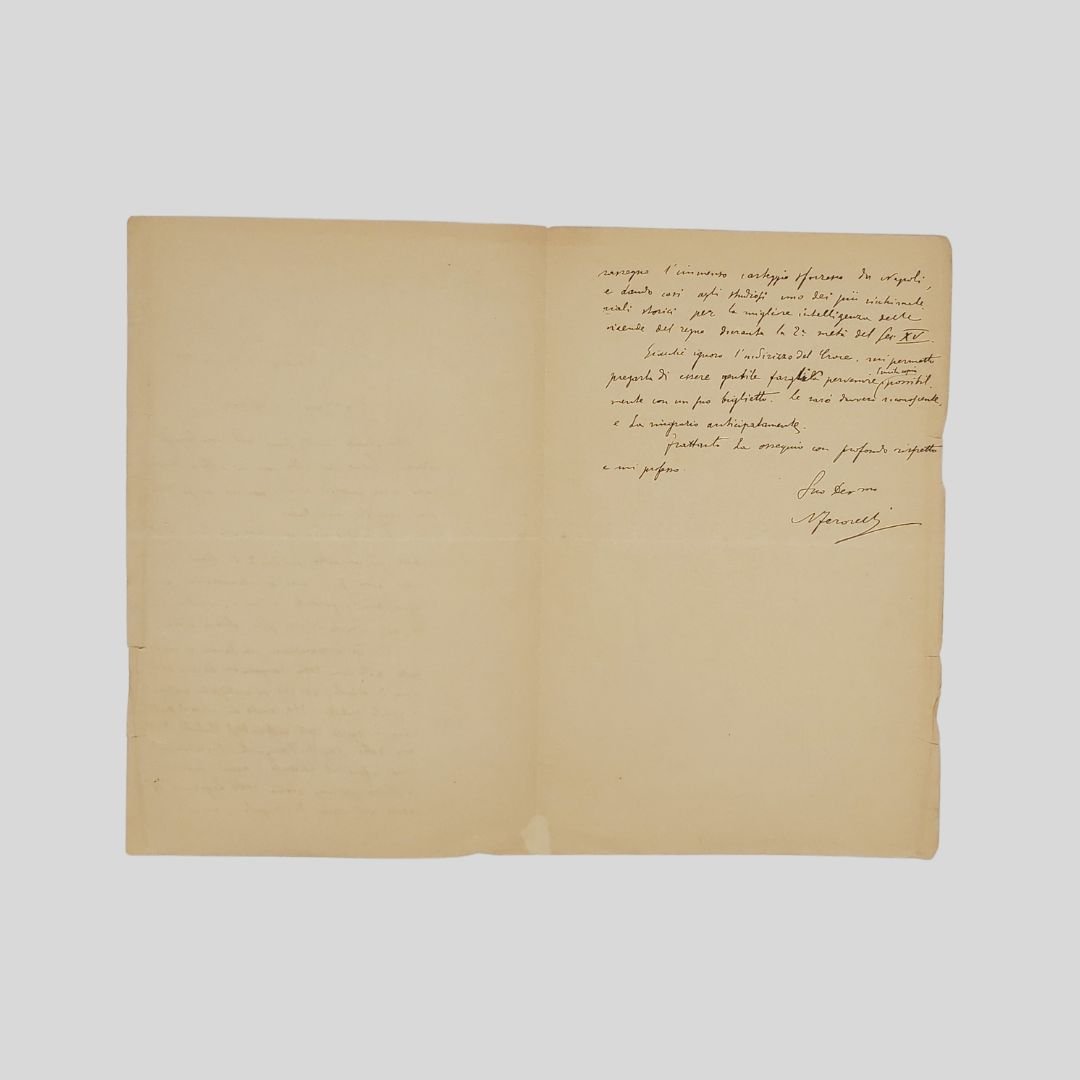 rassegna l'immenso carteggio sforzesco da Napoli,
e dando così agli studiosi uno dei più
storici per la migliore intelligenza delle
vicende del regno durante la 2ª metà del Sec. XV.
Giacchè ignoro l'indirizzo del Croce, mi permetto
pregarla di essere gentile fargliela pervenire, possibil-
mente con un suo biglietto. Le sarò davvero riconoscente,
e La ringrazio anticipatamente.
Frattanto La ossequio con profondo rispetto
e mi professo
Suo Dev.mo
N. Ferorelli